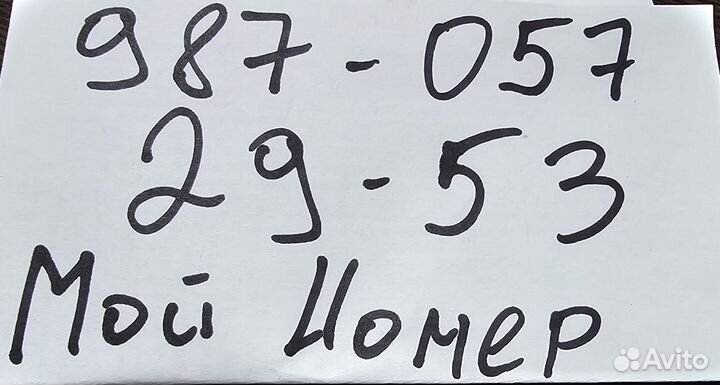 987-057
29-53
Мой Номер
Avito